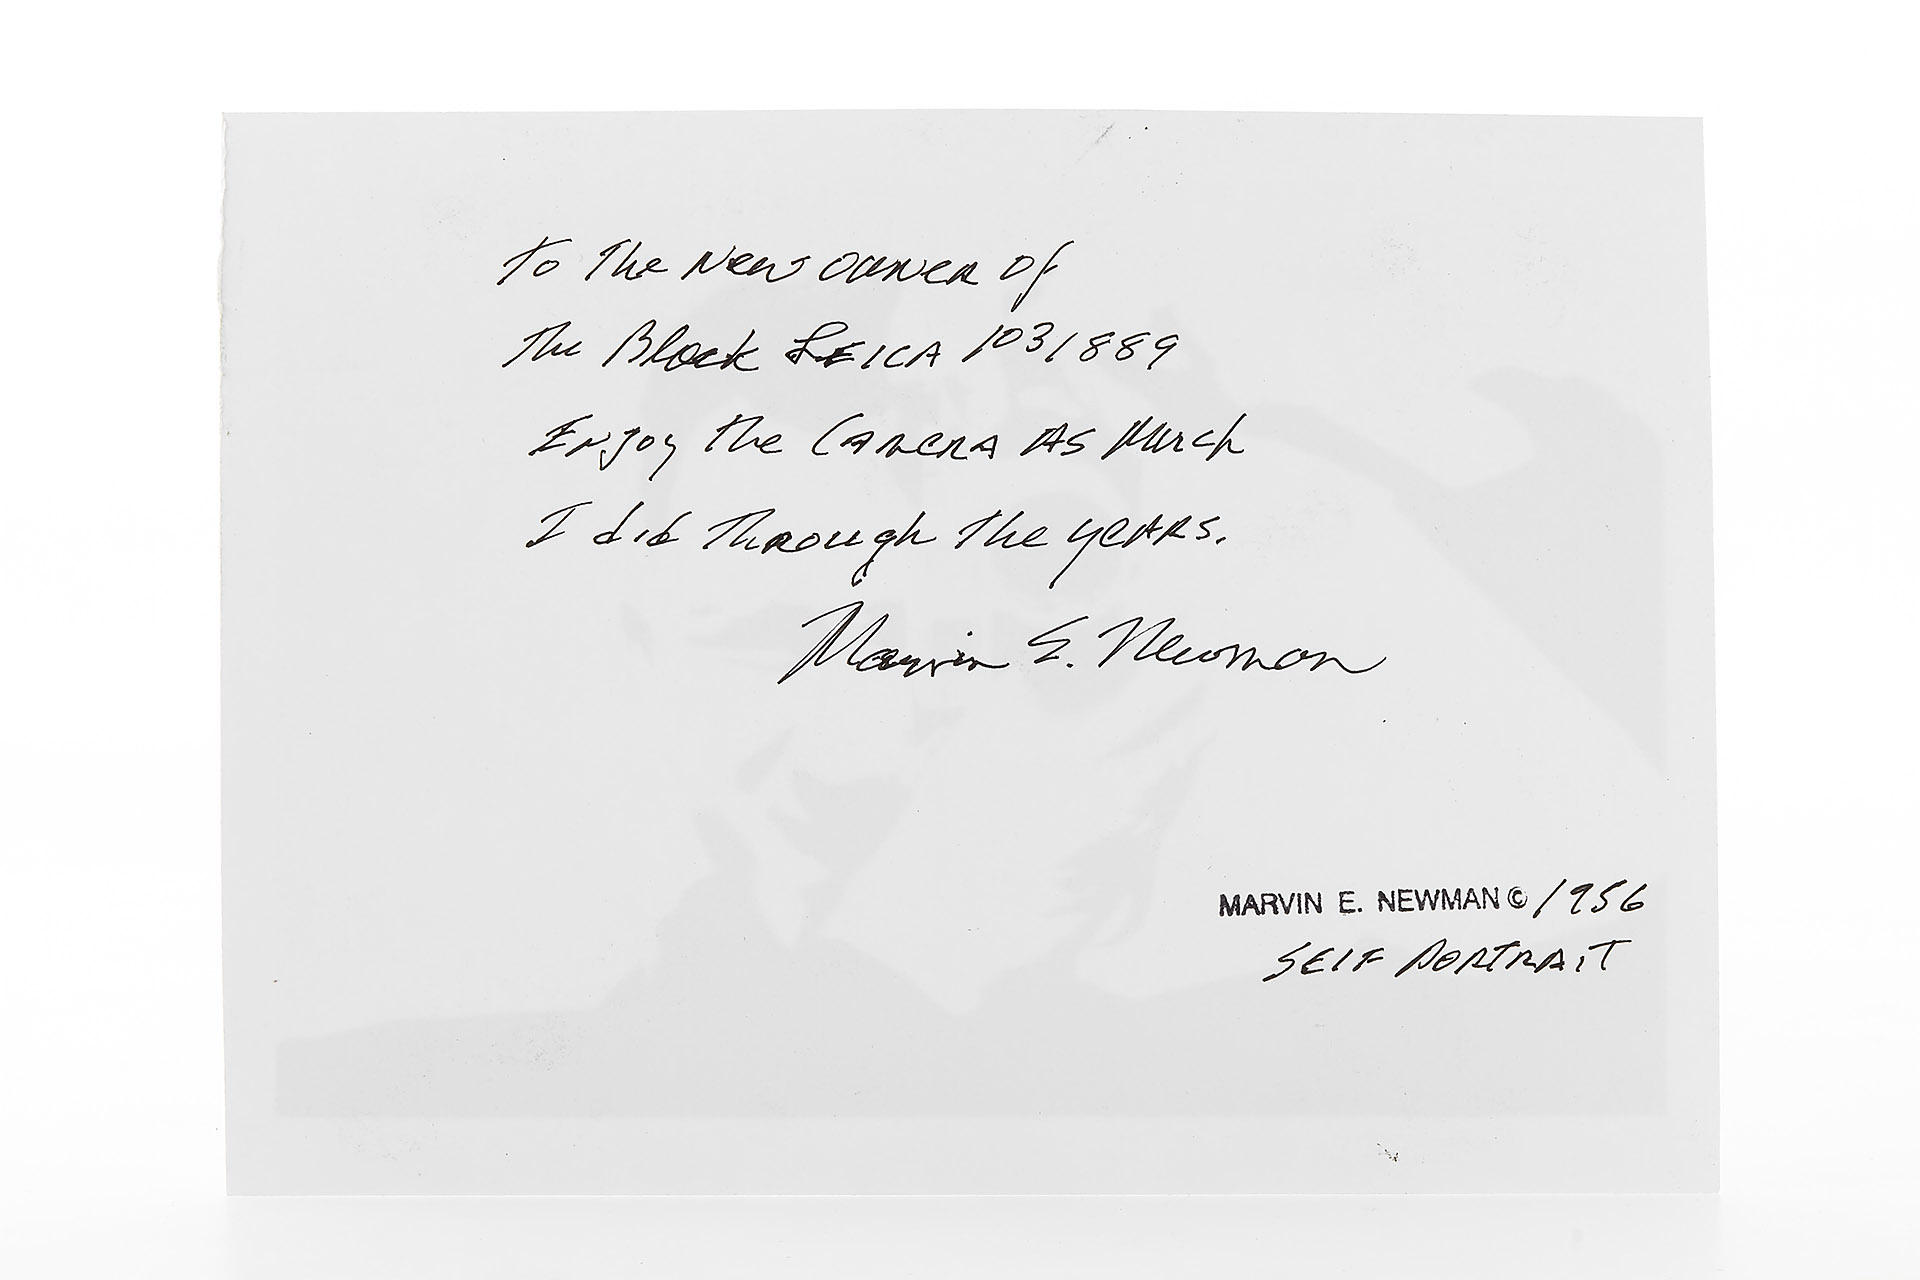 To The New Owner Of
The Black Leica 1031889
Enjoy the Camera As Much
I did Through The years.
Marvin E. Newman
MARVIN E. NEWMAN © 1956
Self Portrait